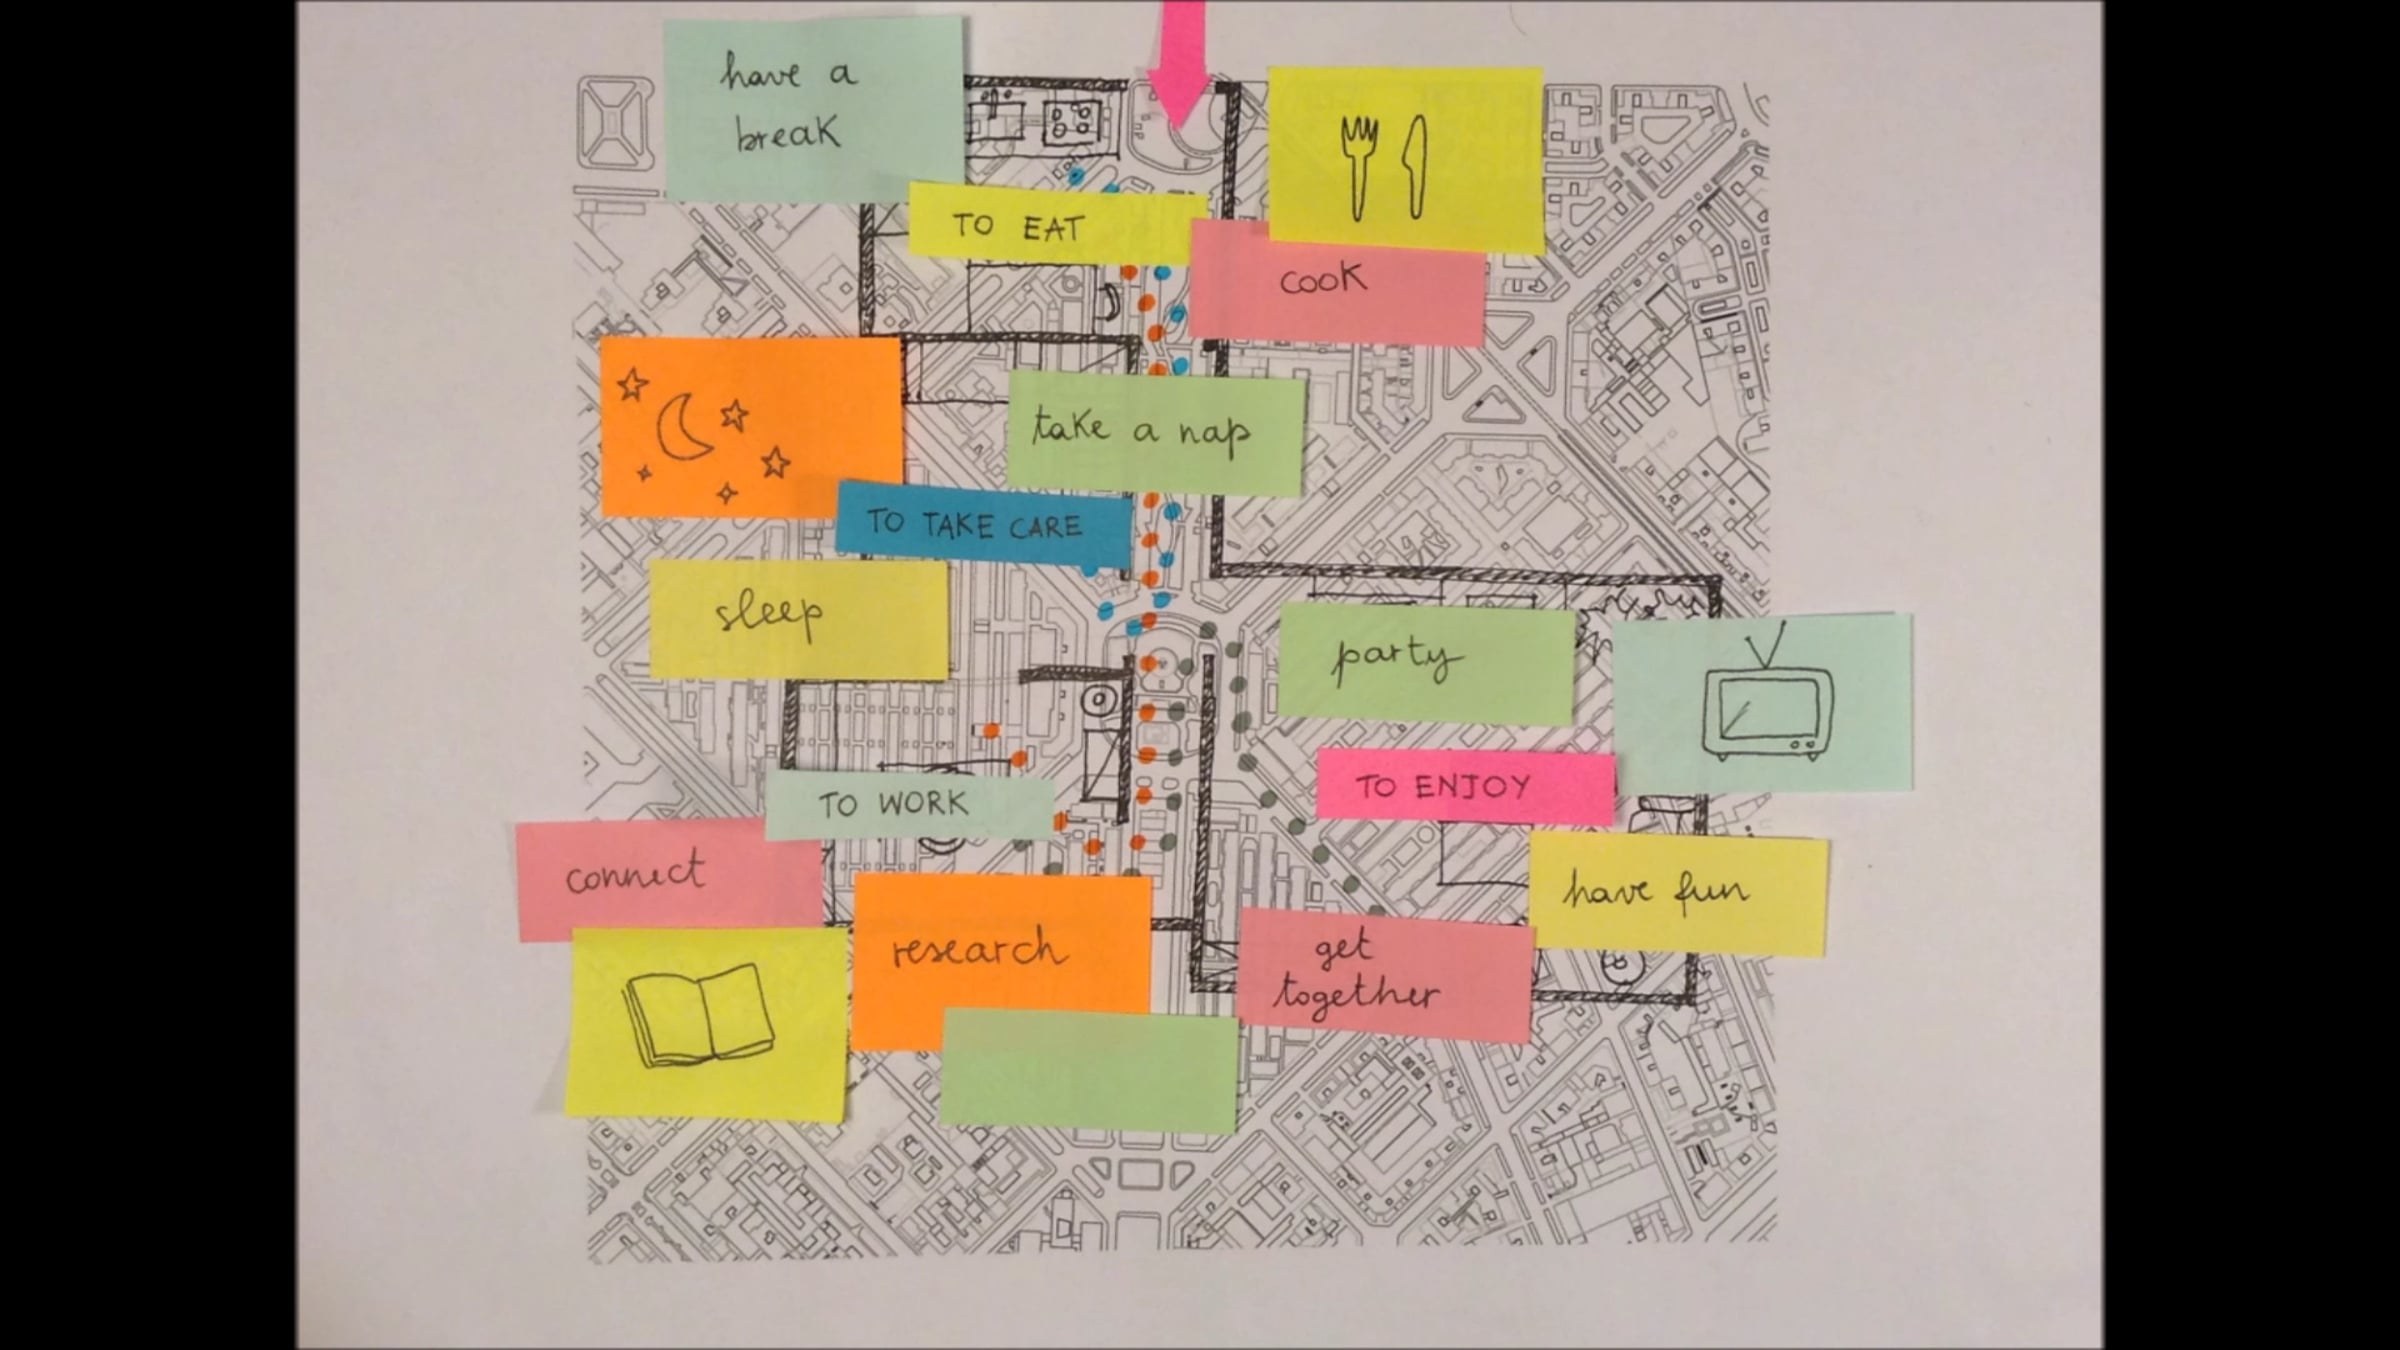 have a
break
TO EAT
cook
take a nap
TO TAKE CARE
sleep
party
TO ENJOY
TO WORK
connect
have fun
research
get
together